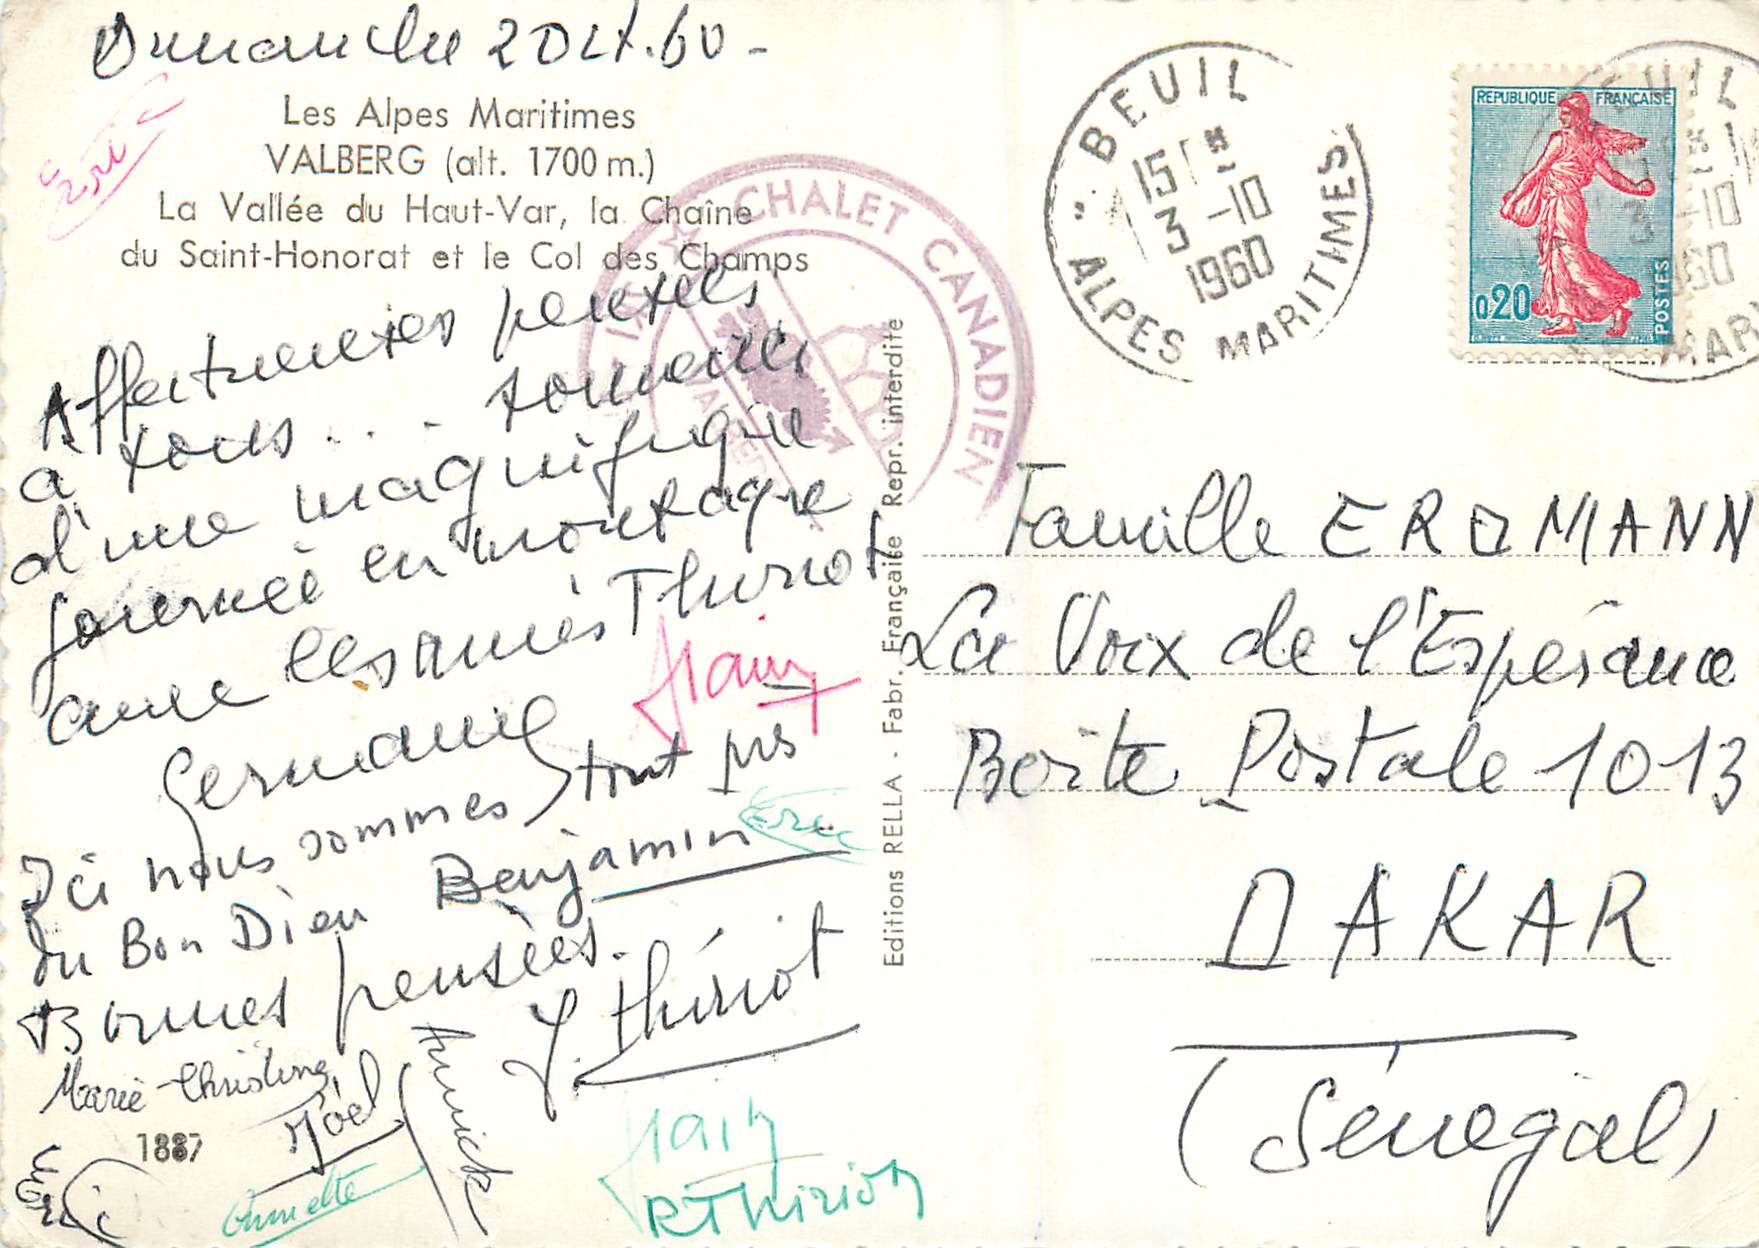 Dimanche 2 Oct. 60 -
Eric
Les Alpes Maritimes
VALBERG (alt. 1700 m.)
La Vallée du Haut-Var, la Chaîne
du Saint-Honorat et le Col des Champs
Affectueuses pensées
à tous . . . souvenirs
d'une magnifique
journée en montagne
avec les amis Thiriot
Germaine
Alain
Ici nous sommes tout près
du Bon Dieu Benjamin
Eric
Bonnes pensées.
J. Thiriot
Marie-Christine
Joël
Annick
1887
Eric
Annette
Alain
R Thiriot
CHALET CANADIEN
VALBERG
Editions RELLA - Fabr. Française Repr. interdite
BEUIL
15 H
3 -10
1960
ALPES MARITIMES
REPUBLIQUE FRANÇAISE
0,20
POSTES
BEUIL
3 -10
1960
Famille ERDMANN
La Voix de l'Espérance
Boîte Postale 1013
DAKAR
(Sénégal)